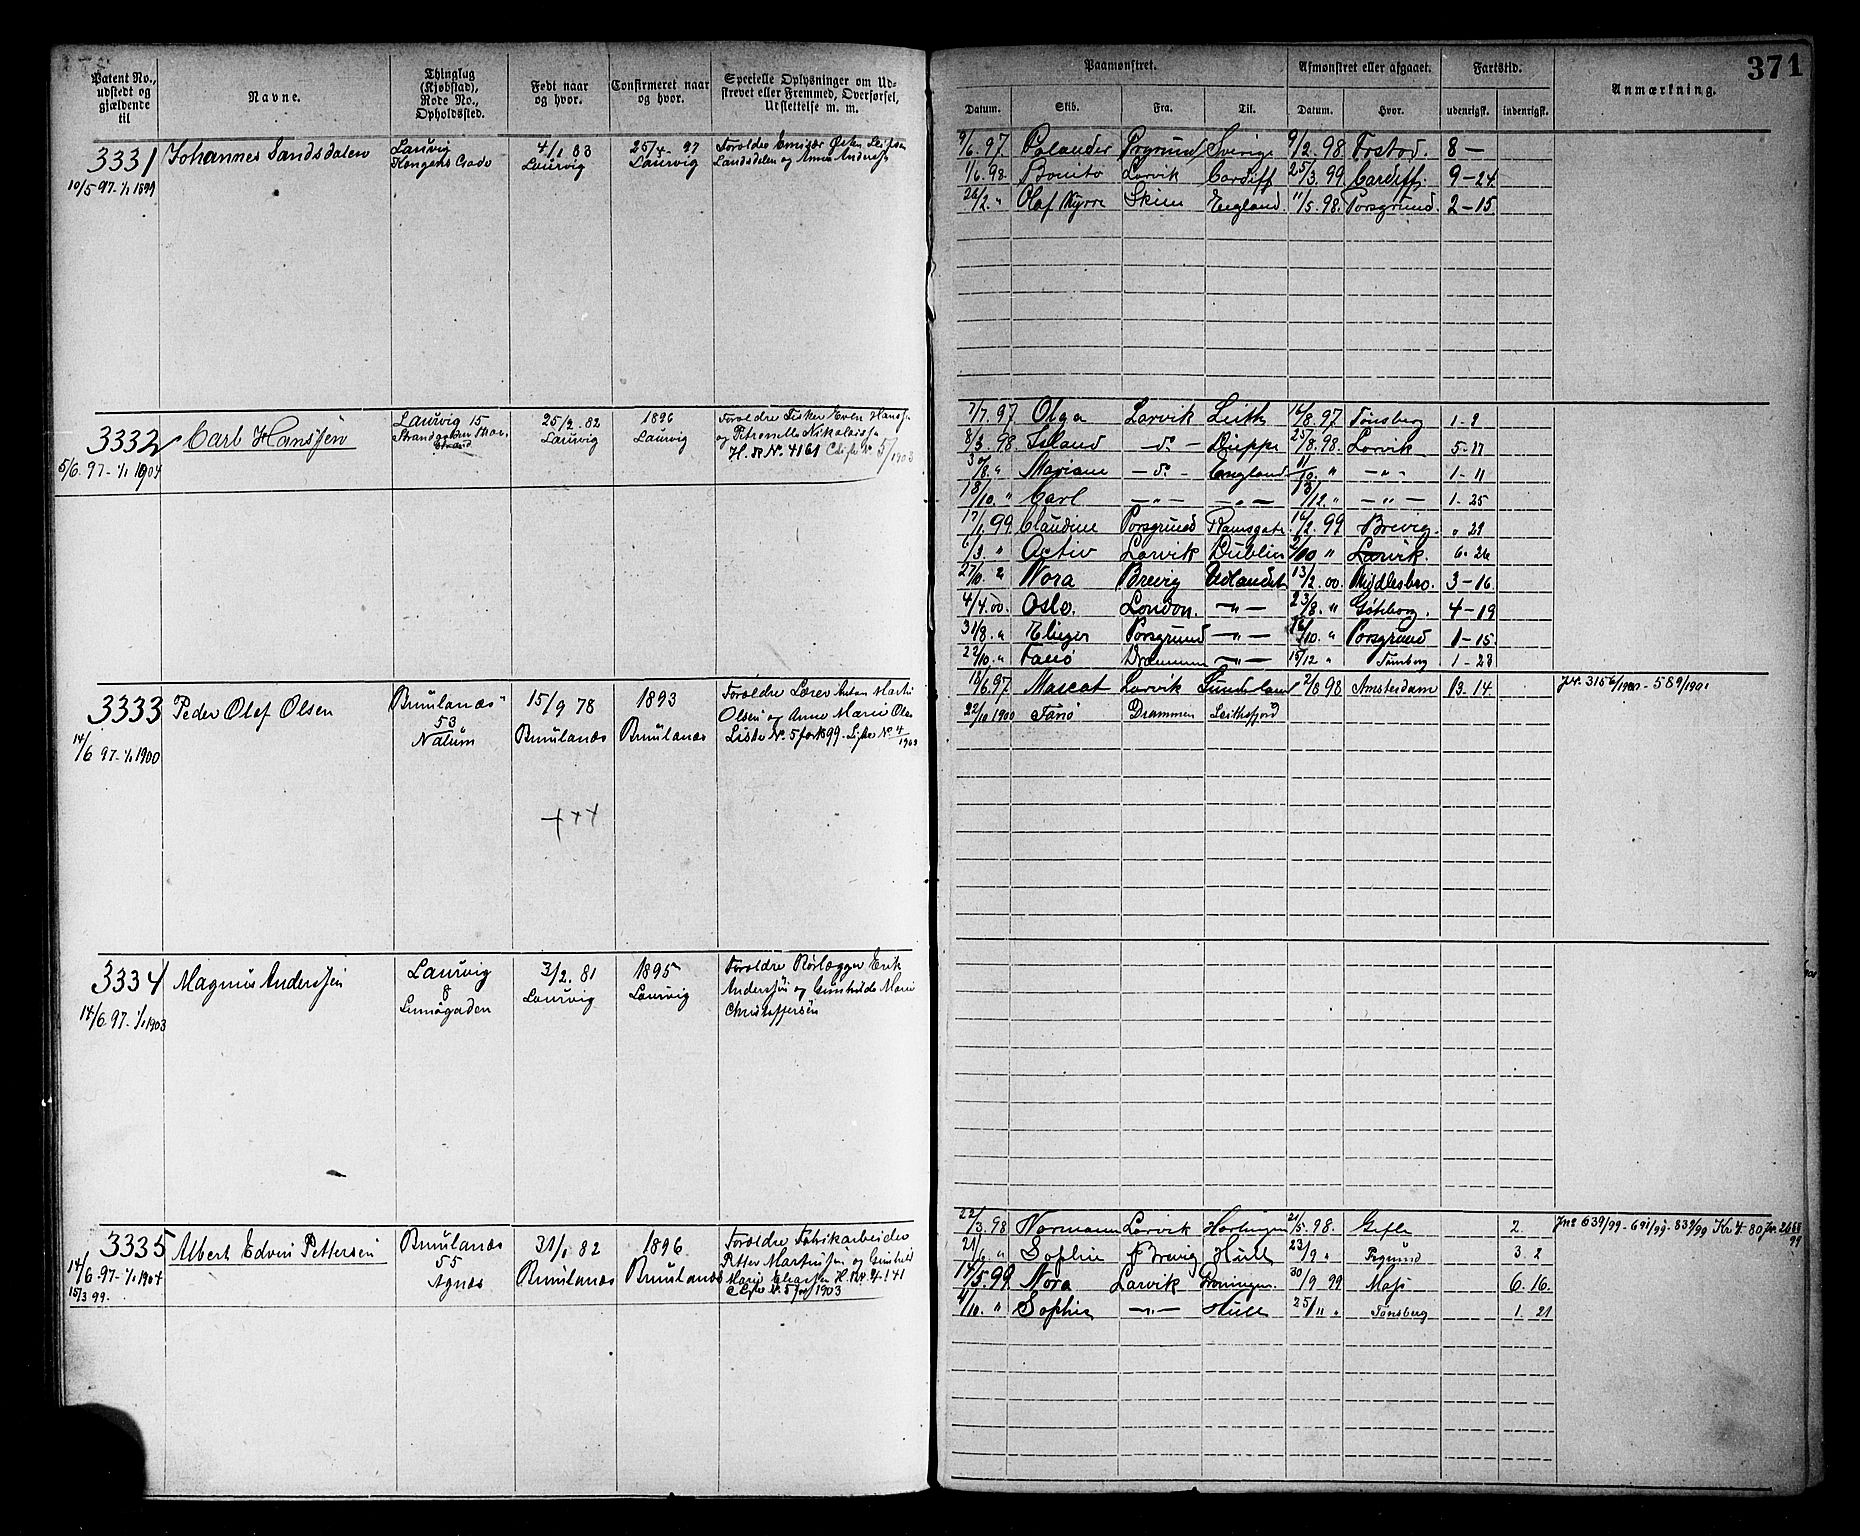 371
Patent No., udstedt og gjældende til
Navne.
Thinglag (Kjøbstad), Rode No., Opholdssted.
Født naar og hvor.
Confirmeret naar og hvor.
Specielle Oplysninger om Udstrevet eller Fremmed, Overførsel, Udslettelse m. m.
Paamønstret.
Afmønstret eller afgaaet.
Fartstid.
Anmærkning.
Datum. Skib. Fra. Til. Datum. Hvor. udenrigsk. indenrigsk.
3331 Johannes Sandsdalen
10/5 97-1/1 1899
Laurvig
4/1 83 Laurvig
25/4 - 97 Laurvig
Forældre
Landsdalen og Anna Anders
9/6. 97 Polander Prgrund Sverige 9/2. 98 Frstad. 8 -
11/6. 98. Bonito Larvik Cardiff 25/3. 99 Cardiff. 9-24
26/2. " Olaf Kyrre Skien England. 11/5. 98. Porsgrund. 2-15
3332 Carl Hanssen
5/6. 97-1/1 1904
Laurvig 15
25/2. 82 Laurvig
1896 Laurvig
Forældre Fisker Even Hanss
og Petronelle Nikolaiss
H. R. Nr. 4161 5/1903
7/7. 97 Olga Larvik Leith 16/8. 97 Tønsberg 1-2
8/3. 98 Island - do - Dieppe 25/8. 98. Larvik 5-17
Mariane - do - England - " - 1-11
18/10. " Carl - " - - " - /12. " - " - 1-25
17/1 99. Claudine Porsgrund Ramsgate 16/2. 99 Brevig. " 29
6/3 " Activ Larvik Dublin 2/10 " Larvik. 6-26
27/10. " Nora Brevig Udlandet 13/2. 00. Middlesbro. 3-16
4/4. 00. Oslo. London. - " - 23/8. " Gøteborg. 4-19
31/8. " Elieser Porsgrund - " - 16/10. " Porsgrund 1-15
22/10. " Fanø Drammen - " - 15/12 " Tønsberg 1-23
3333 Peder Olaf Olsen
14/6 97-1/1 1900
Brunlanæs 53 Nalum
15/9 78 Brunlanæs
1893 Brunlanæs
Forældre Lærer Anton Martin
Olsen og Anne Marie Olse
Liste Nr. 5 for 1899. Liste Nr. 4/1903
18/6 97 Mascat Larvik Sunderland 2/8 98 Amsterdam 13. 14.
Jr. 3156/1900 - 589/1901
22/10 1900 Fanø Drammen Leithsfjord
+++
3334 Magnus Anderssen
14/6. 97-1/1 1903
Laurvig 8
3/2. 81 Laurvig
1895 Laurvig
Forældre Rørlægger Erik
Anderssen og Gunhilde Marie
Christoffersen
3335 Albert Edvin Pettersen
14/6. 97-1/1 1904
15/3 99.
Brunlanæs 55 Agnæs
31/1 82 Brunlanæs
1896. Brunlanæs
Forældre Fabrikarbeider
Petter Martinsen og Gunhild
Marie H. R. Nr. 4141
Nr. 5 for 1903
22/3. 98 Normann Larvik Harlingen 21/5. 98. Gefle 2.
Jn. 639/99 - 691/99 - 839/99 Kr. 4-80
21/6 " Sophie Brevig Hull 23/9 " Prgrund 3. 2
14/5. 99 Nora Larvik Groningen. 30/9 99 6. 16.
/10. " Sophie - " - Hull 25/11 " Tønsberg 1. 21